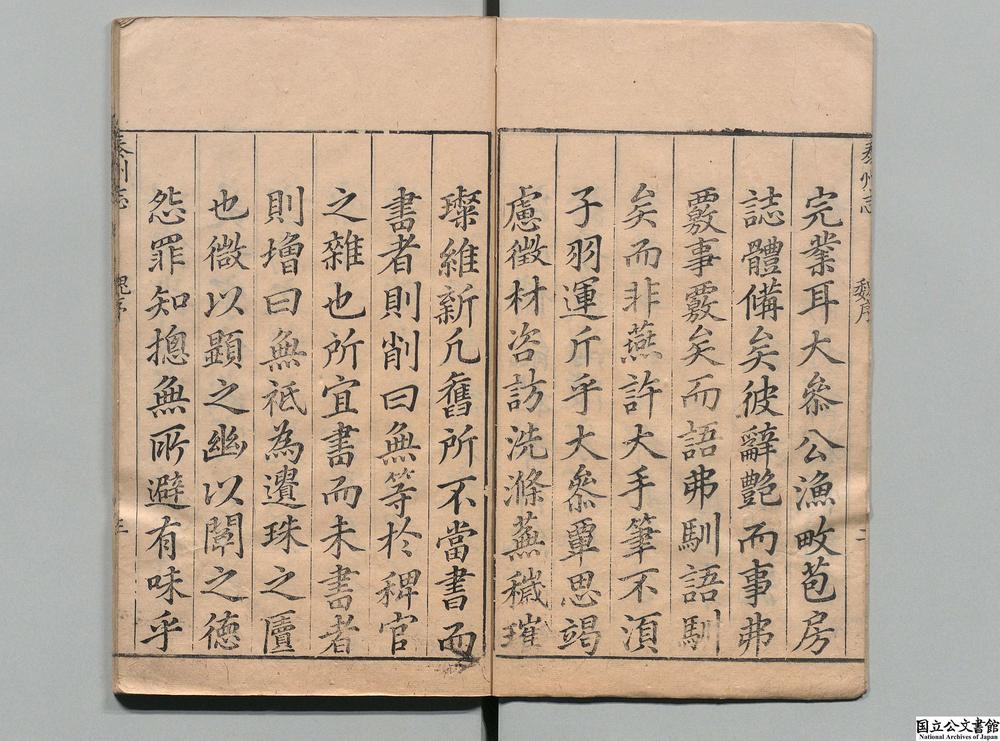 完業耳大叅公漁畋苞房
誌體俻矣彼辭艶而事弗
覈事覈矣而語弗馴語馴
矣而非燕許大手筆不湏
子羽運斤乎大叅覃思竭
慮徴材咨訪洗滌蕪穢璀
璨維新凢舊所不當書而
書者則削曰無等於稗官
之雜也所宜書而未書者
則增曰無祇為遺珠之牘
也微以顕之幽以闡之徳
怨罪知揔無所避有味乎
秦州志
魏序
二
国立公文書館
National Archives of Japan